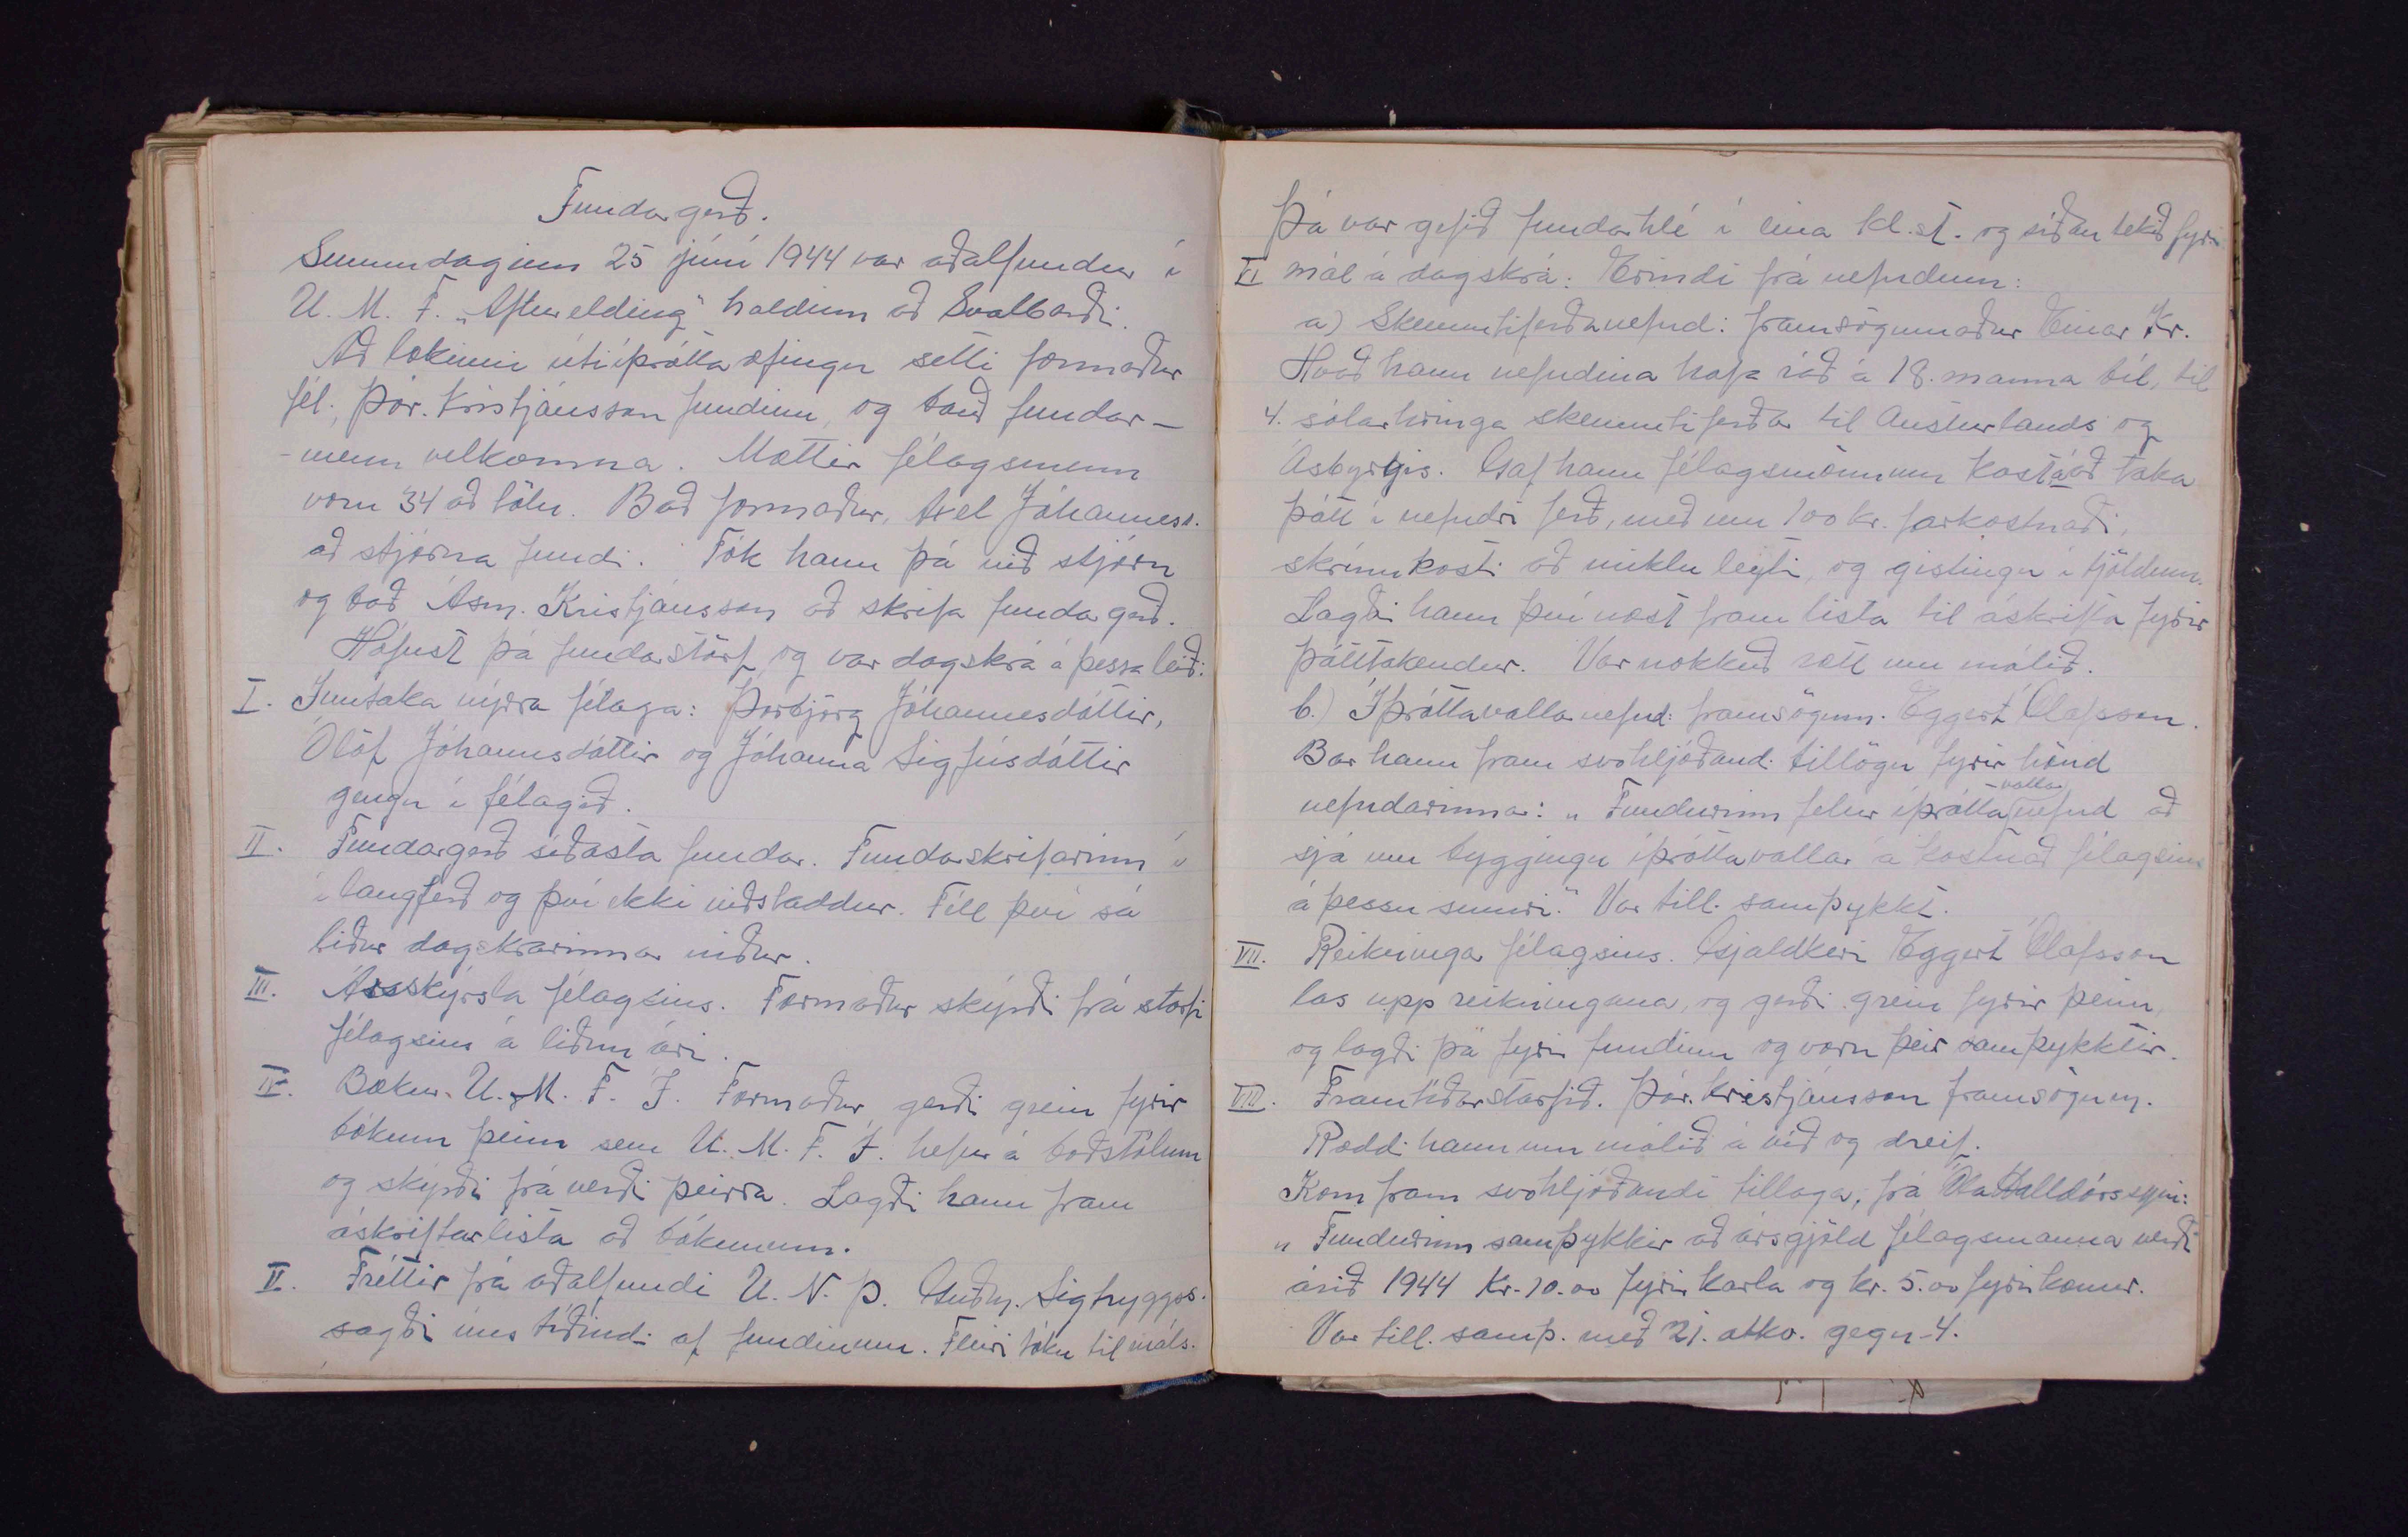 Fundargerð.
Sunnudaginn 25 júní 1944 var aðalfundur í
U. M. F. „Afturelding" haldinn að Svalbarði.
Að lokinni útiíþróttaæfingu setti formaður
fél., Þór. Kristjánsson fundinn, og bauð fundar-
-menn velkomna. Mættir félagsmenn
voru 34 að tölu. Bað formaður, Axel Jóhanness.
að stjórna fundi. Tók hann þá við stjórn
og bað Ásm. Kristjánsson að skrifa fundagerð.
Hófust þá fundarstörf og var dagskrá á þessa leið:
I. Inntaka nýrra félaga: Þorbjörg Jóhannesdóttir,
Ólöf Jóhannsdóttir og Jóhanna Sigfúsdóttir
gengu í félagið.
II. Fundargerð síðasta fundar. Fundarskrifarinn í
í langferð og því ekki viðstaddur. Féll því sá
liður dagskrárinnar niður.
III. Ársskýrsla félagsins. Formaður skýrði frá starfi
félagsins á liðnu ári.
IV. Bækur U. M. F. Í. Formaður gerði grein fyrir
bókum þeim sem U. M. F. Í. hefur á boðstólum
og skýrði frá verði þeirra. Lagði hann fram
áskriftarlista að bókunum.
V. Fréttir frá aðalfundi U. N. Þ. Guðm. Sigtryggss.
sagði ýms tíðindi af fundinum. Fleiri tóku til máls.
Þá var gefið fundarhlé í eina kl.st. og síðan tekið fyrir
VI mál á dagskrá: Erindi frá nefndum:
a) Skemmtiferðanefnd: framsögumaður Einar Kr.
Kvað hann nefndina hafa ráð á 18. manna bíl, til
4. sólarhringa skemmtiferðar til Austurlands og
Ásbyrgis. Gaf hann félagsmönnum kost á að taka
þátt í nefndri ferð, með um 100 kr. farkostnaði,
skrínukosti að miklu leyti, og gistingu í tjöldum.
Lagði hann því næst fram lista til áskrifta fyrir
þátttakendur. Var nokkuð rætt um málið.
b.) Íþróttavallanefnd: framsögum. Eggert Ólafsson.
Bar hann fram svohljóðandi tillögu fyrir hönd
nefndarinnar: „Fundurinn felur íþrótta-vallanefnd að
sjá um byggingu íþróttavallar á kostnað félagsins
á þessu sumri." Var till. samþykkt.
VII. Reikninga félagsins. Gjaldkeri Eggert Ólafsson
las upp reikningana, og gerði grein fyrir þeim,
og lagði þá fyrir fundinn og voru þeir samþykktir.
VIII. Framtíðarstarfið. Þór. Kristjánsson framsögum.
Ræddi hann um málið á víð og dreif.
Kom fram svohljóðandi tillaga, frá Óla Halldórssyni:
„Fundurinn samþykkir að ársgjöld félagsmanna verði
árið 1944 Kr. 10.oo fyrir karla og kr. 5.oo fyrir konur.
Var till. samþ. með 21. atkv. gegn 4.